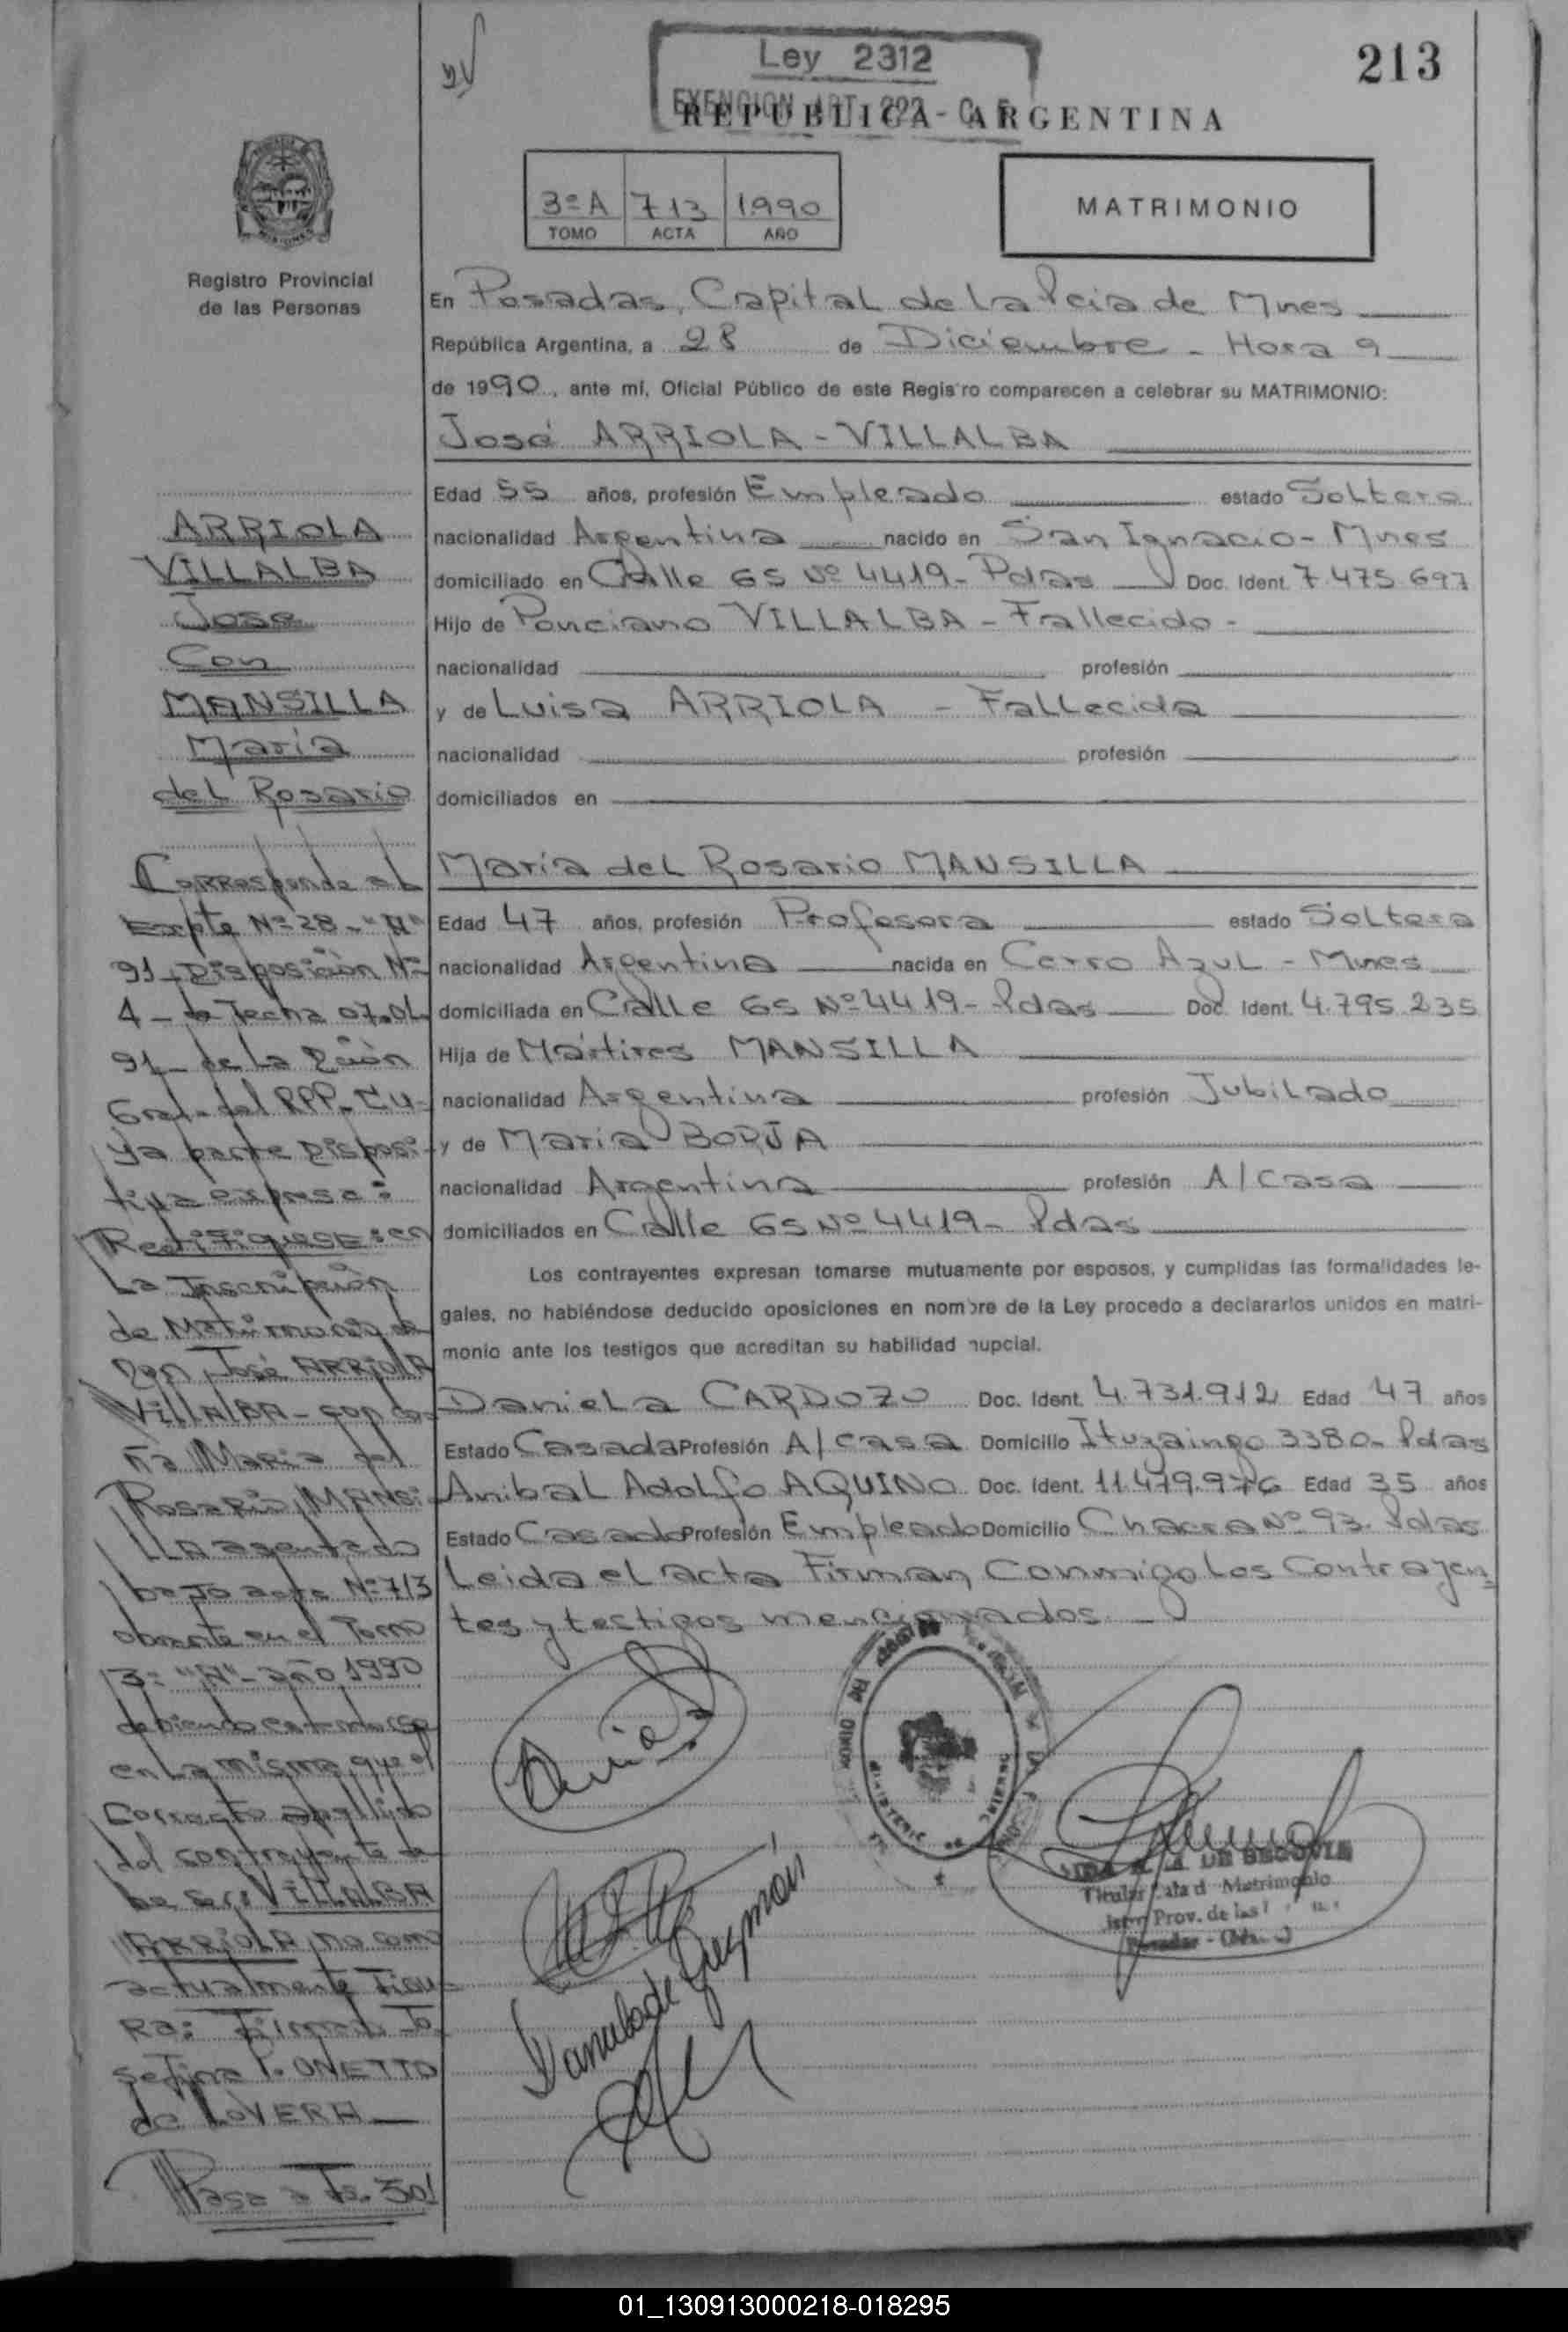 213
Ley 2312
EXENCION ART. 292 - C. F.
REPUBLICA ARGENTINA
3º A 713 1990
TOMO ACTA AÑO
MATRIMONIO
Registro Provincial
de las Personas
En Posadas, Capital de la Pcia de Mnes
República Argentina, a 28 de Diciembre - Hora 9
de 1990, ante mí, Oficial Público de este Registro comparecen a celebrar su MATRIMONIO:
José ARRIOLA - VILLALBA
Edad 55 años, profesión Empleado estado Soltero
nacionalidad Argentina nacido en San Ignacio - Mnes
domiciliado en Calle 65 Nº 4419 - Pdas Doc. Ident. 7.475.697
Hijo de Ponciano VILLALBA - Fallecido -
nacionalidad profesión
y de Luisa ARRIOLA - Fallecida
nacionalidad profesión
domiciliados en
María del Rosario MANSILLA
Edad 47 años, profesión Profesora estado Soltera
nacionalidad Argentina nacida en Cerro Azul - Mnes
domiciliada en Calle 65 Nº 4419 - Pdas Doc. Ident. 4.795.235
Hija de Mártires MANSILLA
nacionalidad Argentina profesión Jubilado
y de María BORJA
nacionalidad Argentina profesión A/casa
domiciliados en Calle 65 Nº 4419 - Pdas
Los contrayentes expresan tomarse mutuamente por esposos, y cumplidas las formalidades le-
gales, no habiéndose deducido oposiciones en nombre de la Ley procedo a declararlos unidos en matri-
monio ante los testigos que acreditan su habilidad nupcial.
Daniela CARDOZO Doc. Ident. 4.731.912 Edad 47 años
Estado Casada Profesión A/casa Domicilio Ituzaingo 3380 - Pdas
Anibal Adolfo AQUINO Doc. Ident. 11.479.976 Edad 35 años
Estado Casado Profesión Empleado Domicilio Chacra Nº 93. Pdas
Leida el acta Firman Conmigo los Contrayen=
tes y testigos mencionados
DE SEGOVIA
Titular Sala d Matrimonio
Prov. de las
Posadas
ARRIOLA
VILLALBA
Jose
Con
MANSILLA
María
del Rosario
Corresponde al
Expte Nº 28 - "A"
91 - Disposición Nº
4 - de fecha 07.01.
91 - de la
Gral. del RPP. Cu-
ya parte Disposi-
tiva expresa:
Rectifiquese: en
La Inscripción
de Matrimonio de
Don José ARRIOLA
VILLALBA - con do-
ña María del
Rosario MANSI-
LLA asentado
bajo acta Nº 713
obrante en el Tomo
3º "A" - año 1990
debiendo
en la misma que el
Correcto apellido
del contrayente de
be ser: VILLALBA
ARRIOLA no como
actualmente Figu-
Ra: Firmado Jo
sefina P. ONETTO
de LOVERA
Pasa a Fs. 301
01_130913000218-018295